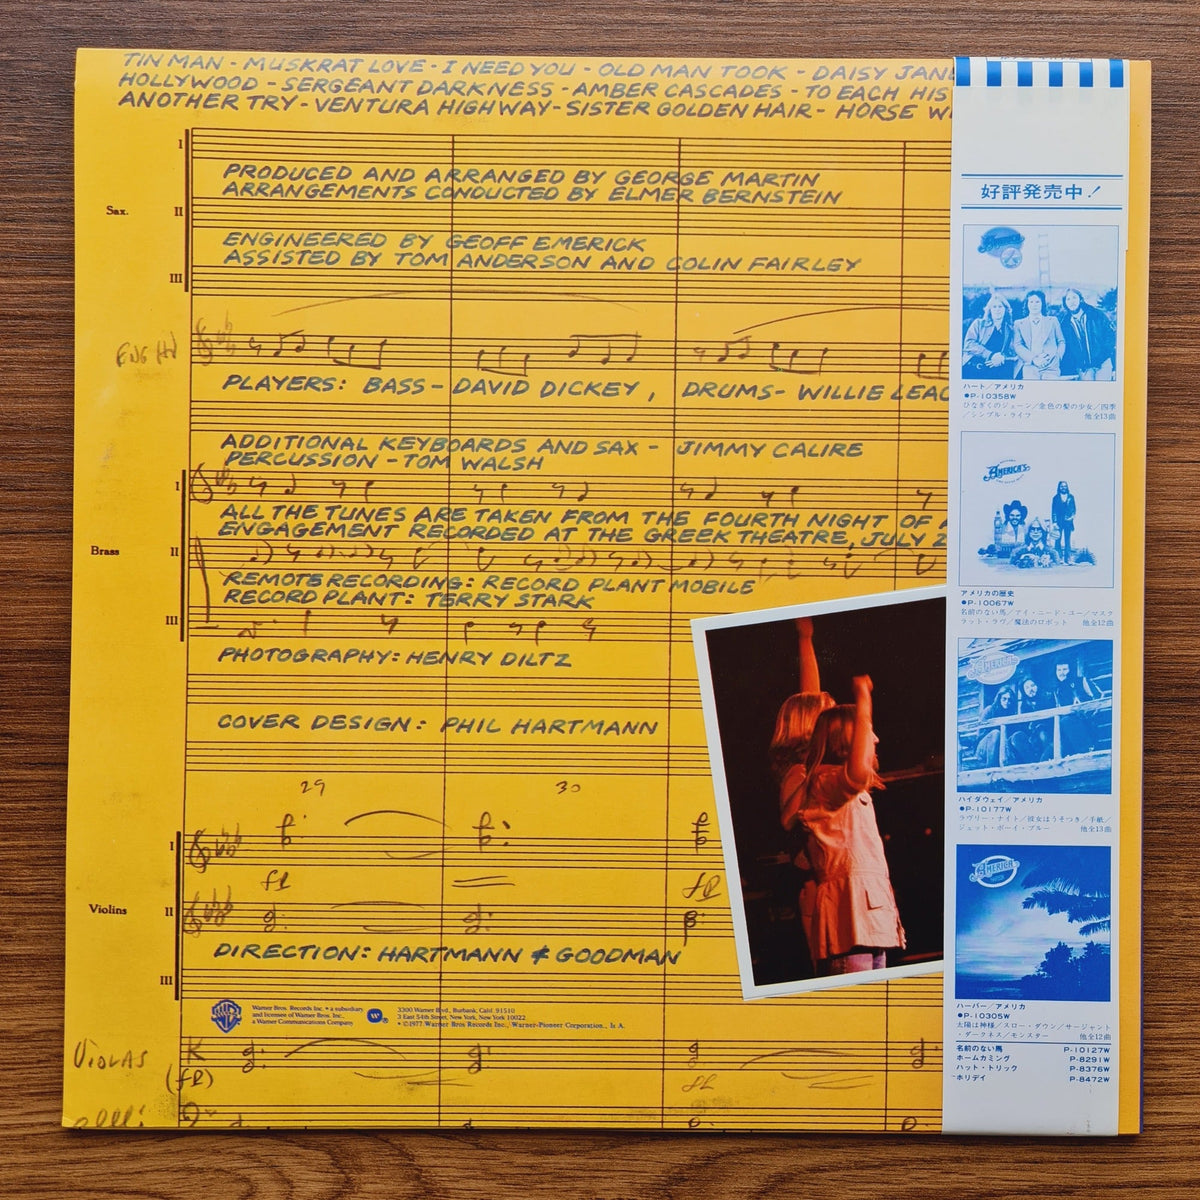 TIN MAN - MUSKRAT LOVE - I NEED YOU - OLD MAN TOOK - DAISY JANE
HOLLYWOOD - SERGEANT DARKNESS - AMBER CASCADES - TO EACH HIS
ANOTHER TRY - VENTURA HIGHWAY - SISTER GOLDEN HAIR - HORSE
I
PRODUCED AND ARRANGED BY GEORGE MARTIN
ARRANGEMENTS CONDUCTED BY ELMER BERNSTEIN
Sax.
II
ENGINEERED BY GEOFF EMERICK
ASSISTED BY TOM ANDERSON AND COLIN FAIRLEY
III
ENG HN
PLAYERS: BASS - DAVID DICKEY, DRUMS - WILLIE LEAC
ADDITIONAL KEYBOARDS AND SAX - JIMMY CALIRE
PERCUSSION - TOM WALSH
I
ALL THE TUNES ARE TAKEN FROM THE FOURTH NIGHT OF
ENGAGEMENT RECORDED AT THE GREEK THEATRE, JULY 2
Brass
II
REMOTE RECORDING: RECORD PLANT MOBILE
RECORD PLANT: TERRY STARK
III
PHOTOGRAPHY: HENRY DILTZ
COVER DESIGN: PHIL HARTMANN
29 30
I
Violins
II
DIRECTION: HARTMANN & GOODMAN
III
Warner Bros. Records Inc. • a subsidiary
and licensee of Warner Bros. Inc.,
a Warner Communications Company
3300 Warner Blvd., Burbank, Calif. 91510
3 East 54th Street, New York, New York 10022
• ©1977 Warner Bros Records Inc., Warner-Pioneer Corporation.,
VIOLAS
好評発売中!
ハート/アメリカ
●P-10358W
ひなぎくのジェーン/金色の髪の少女/四季
/シンプル・ライフ 他全13曲
AMERICA'S
アメリカの歴史
●P-10067W
名前のない馬/アイ・ニード・ユー/マスク
ラット・ラヴ/魔法のロボット 他全12曲
AMERICA
ハイダウェイ/アメリカ
●P-10177W
ラヴリー・ナイト/彼女はうそつき/手紙/
ジェット・ボーイ・ブルー 他全13曲
AMERICA
ハーバー/アメリカ
●P-10305W
太陽は神様/スロー・ダウン/サージャント
・ダークネス/モンスター 他全12曲
名前のない馬 P-10127W
ホームカミング P-8291W
ハット・トリック P-8376W
ホリデイ P-8472W